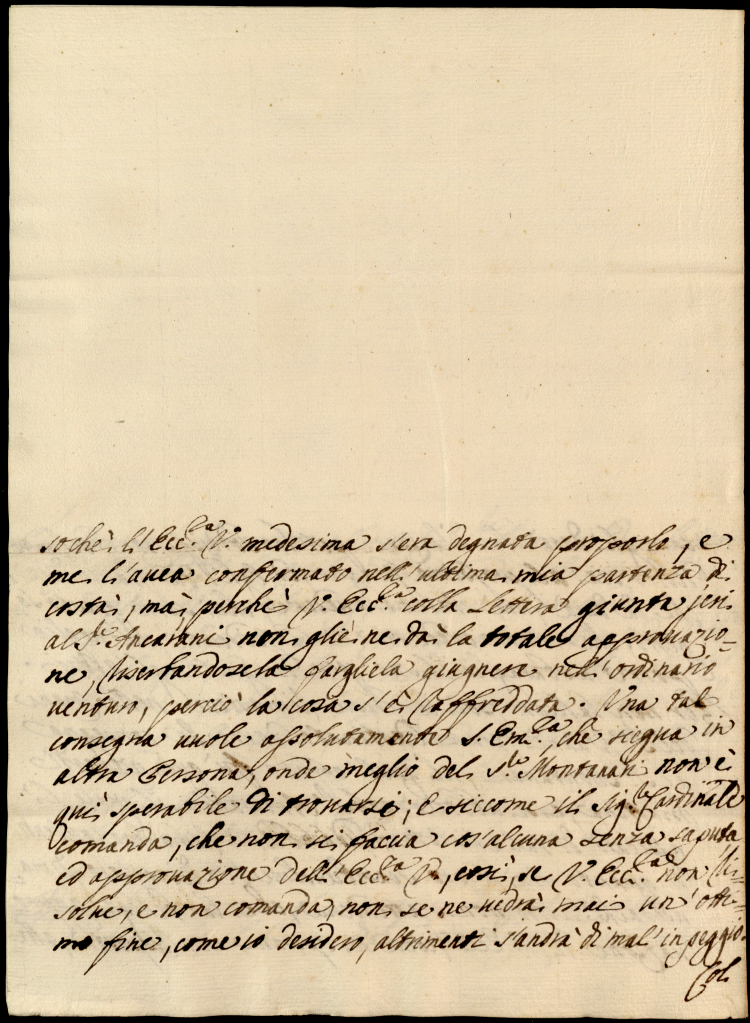 soche l'Ecc.za V. medesima s'era degnata proporlo, e
me l'avea confermato nell'ultima mia partenza di
costà, mà perchè V. Ecc.za colla Lettera giunta jeri
al S.r Ancarani non gliè ne dà la totale approvazio-
ne, riserbandosela fargliela giugnere nell'ordinario
venturo, perciò la cosa s'è raffreddata. Una tal
consegna vuole assolutamente S. Em.za che siegua in
altra Persona, onde meglio del S.r Montanari non è
quì sperabile di trovarsi; E siccome il Sig.r Cardinale
comanda, che non si faccia cos'alcuna senza saputa
ed approvazione dell'Ecc.za V., così, se V. Ecc.za non ri-
solve, e non comanda, non se ne vedrà mai un'otti-
mo fine, come io desidero, altrimenti s'andrà di mal'in peggio.
Col